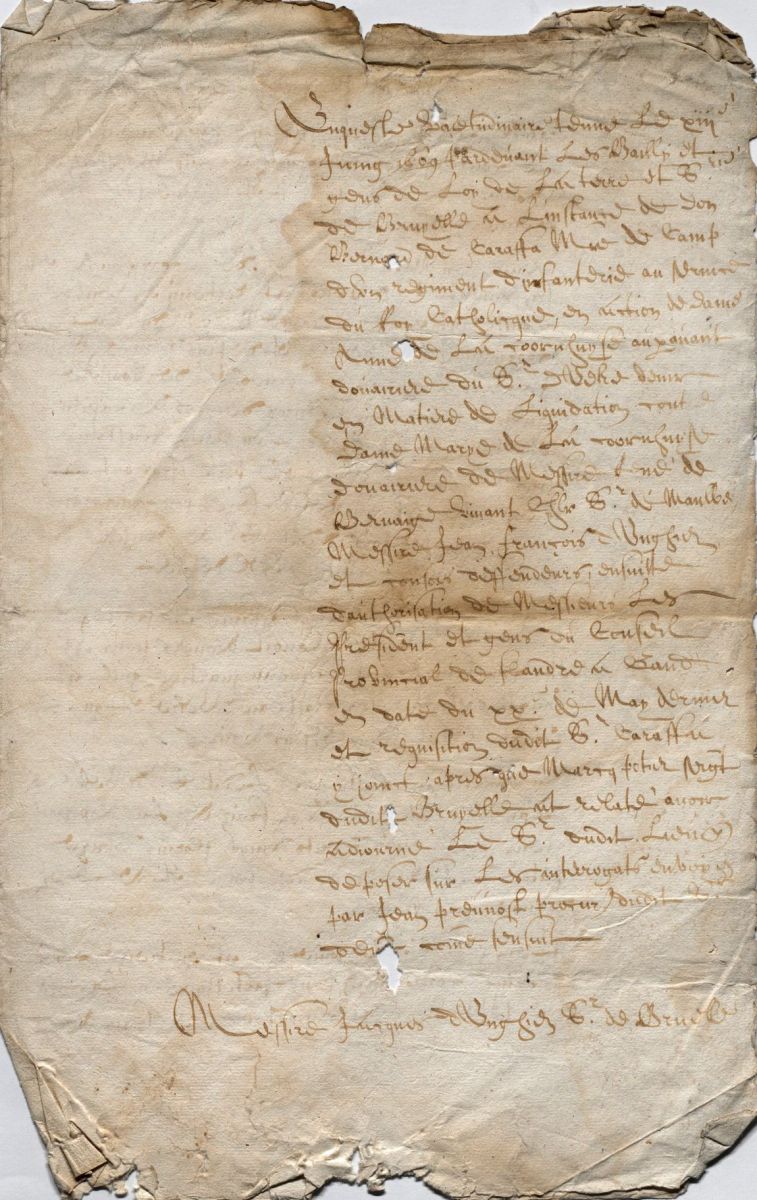 Enqueste valetudinaire tenue le xiiii^e
Juing 1669 pardevant les Bailly et
gens de Loy de la terre et S^rie
de Bruyelle a linstance de don
Bernard de Caraffa M^re de Camp
dun regiment dinfanterie au service
du Roy Catholicque, en action de dame
Anne de La Coornhuyse auparavant
douairiere du S^r
en Matiere de Liquidation cont^e
Dame Marye de La Coornhuyse
douairiere de Messire René de
vivant S^r de Maulde
Messire Jean francois d'Enghien
et consors deffendeurs, ensuitte
d'authorisation de Messieurs Les
President et gens du Conseil
Provincial de flandre a Gand
en date du xx^e de May dernier
et requisition dudit S^r Caraffa
y joinct, apres que Marcq peter serg^t
dudit Bruyelle at relaté avoir
adjourné Le S^r dudit Lieu
deposer sur Les interrogats envoyez
par Jean prevost procur^r dudit S^r
come sensuit
Messire Jacques d'Enghien S^r de Bruelle